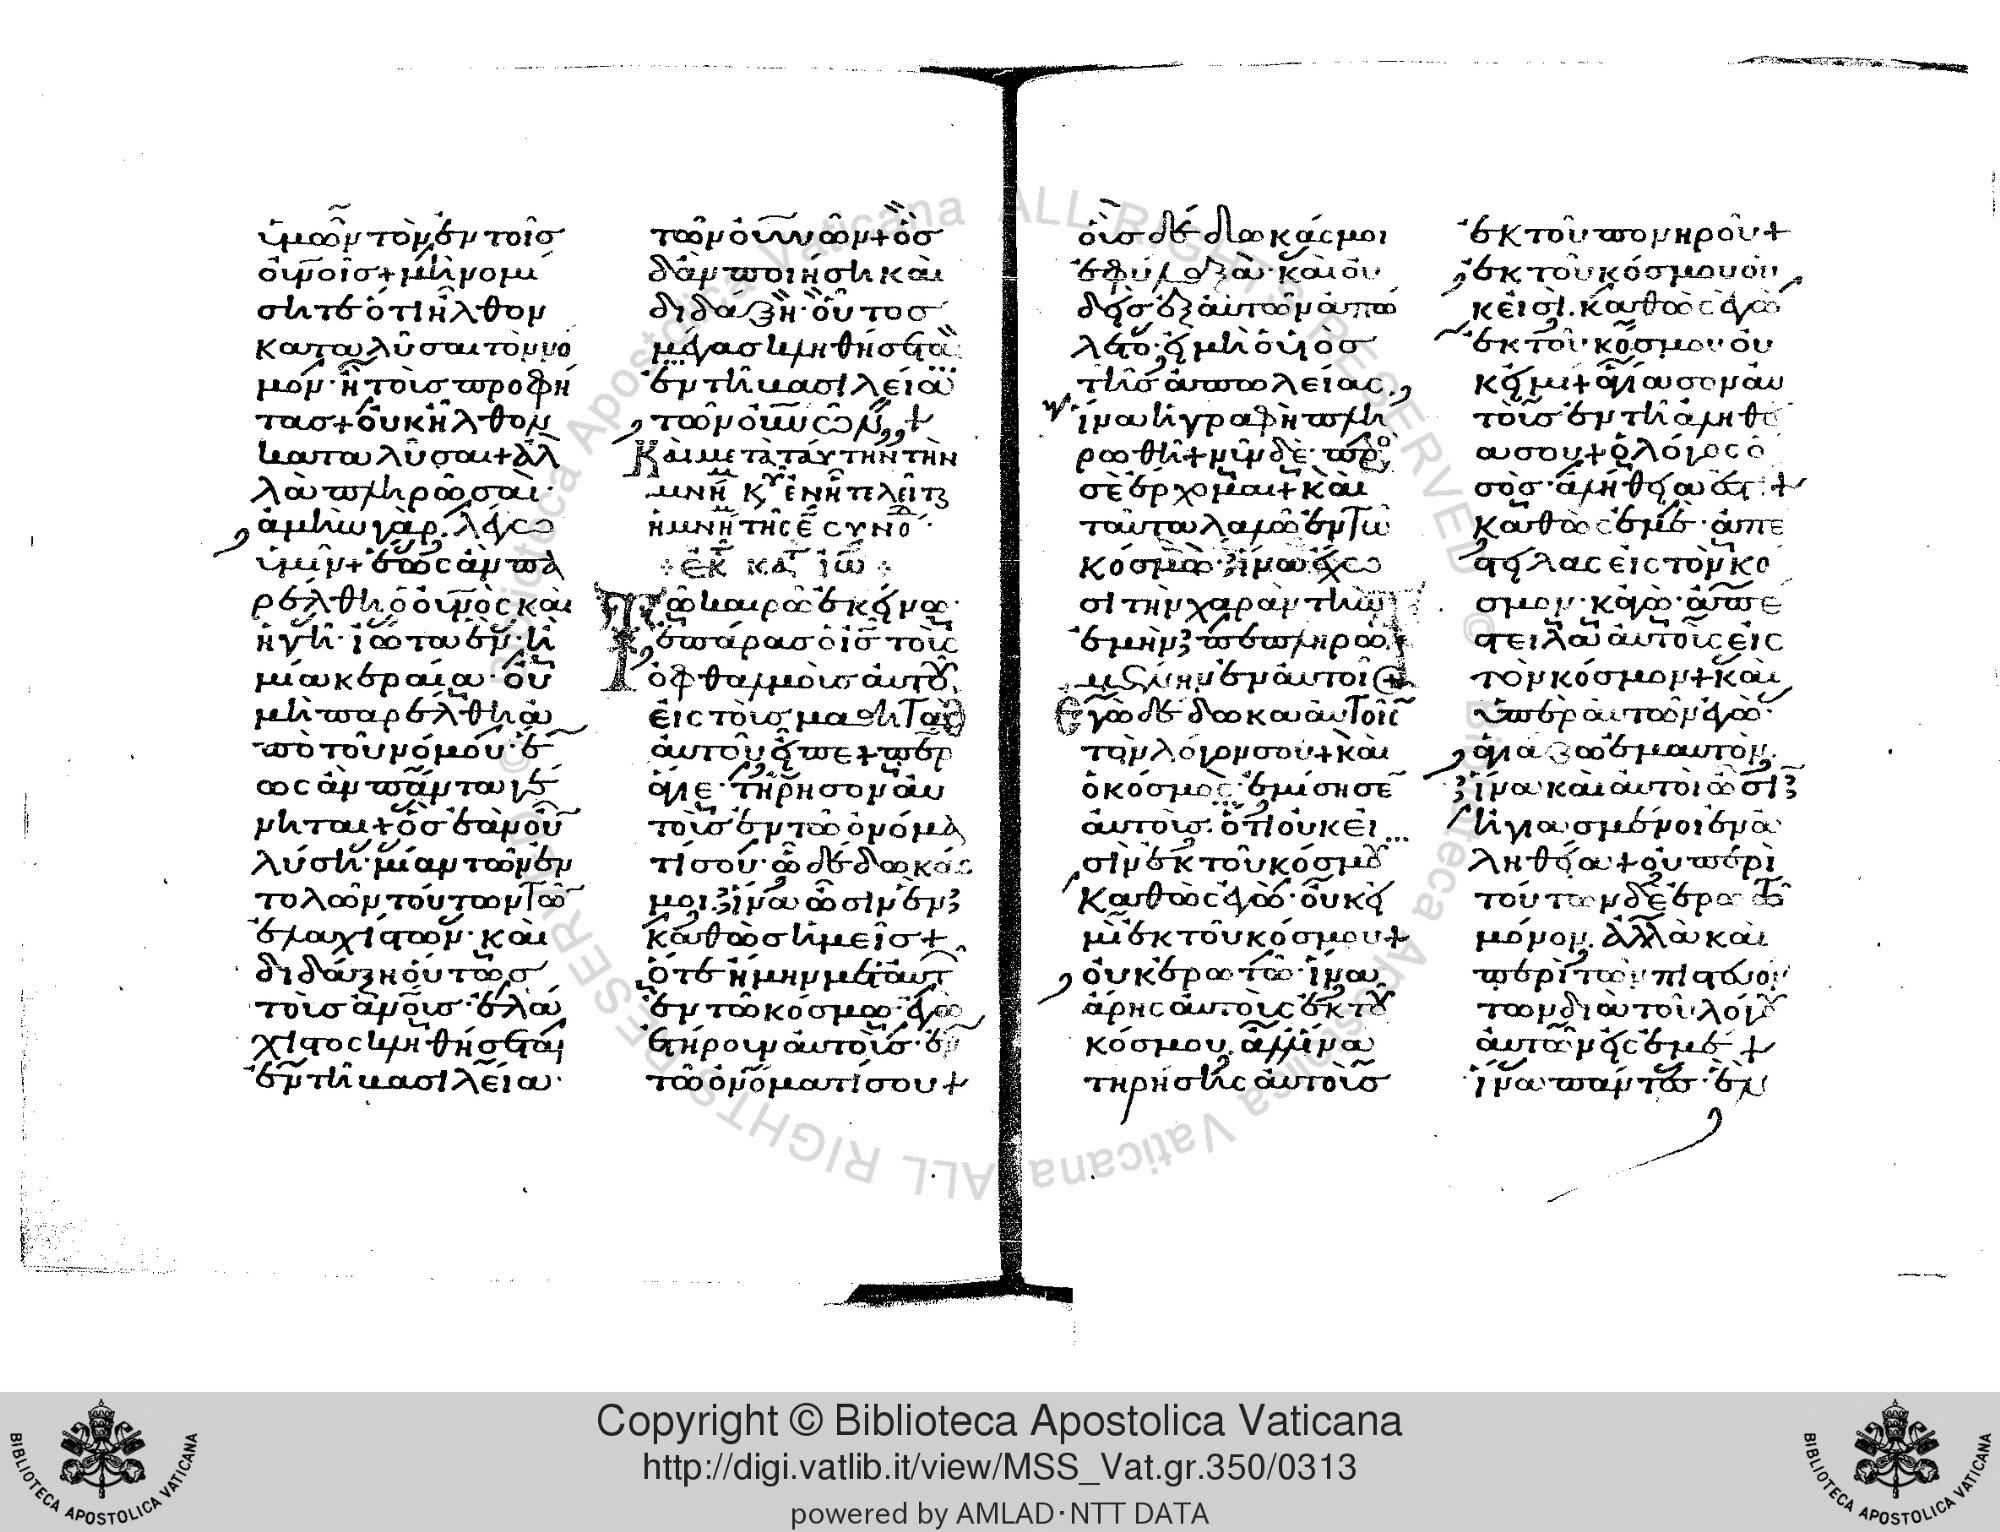 ὑμῶν τὸν ἐν τοῖς
οὐνοῖς + μὴ νομί
σητε ὅτι ἦλθον
καταλῦσαι τὸν νό
μον · ἢ τοὺς προφή
τας + οὐκ ἦλθον
καταλῦσαι + ἀλ
λὰ πληρῶσαι ·
ἀμὴν γὰρ λέγω
ὑμῖν + ἕως ἂν πα
ρέλθη ὁ οὐνὸς καὶ
ἡ γῆ · ἰῶτα ἓν · ἢ
μία κεραία · οὐ
μὴ παρέλθη ἀ
πὸ τοῦ νόμου · ἕ
ως ἂν πάντα γέ
νηται + ὃς ἐὰν οὖν
λύση · μίαν τῶν ἐν
τολῶν τούτων τῶν
ἐλαχίστων · καὶ
διδάξη οὕτως
τοὺς ἀνοὺς · ἐλά
χιστος κληθήσεται
ἐν τῆ βασιλεία ·
τῶν οὐνῶν + ὃς
δ' ἂν ποιήση καὶ
διδάξη · οὗτος
μέγας κληθήσεται
ἐν τῆ βασιλεία
τῶν οὐνῶν +
Καὶ μετὰ ταύτην τὴν
ἐκ κατ ἰω
Τῶ καιρῶ ἐκείνω ·
ἐπάρας ὁ ις τοὺς
ὀφθαλμοὺς αὐτοῦ
εἰς τοὺς μαθητὰς
αὐτοῦ εἶπε + περ
ἅγιε · τήρησον αὐ
τοὺς ἐν τῶ ὀνόμα
τί σου · ὧ δέδωκάς
μοι ἵνα ὦσιν ἓν
καθὼς ἡμεῖς +
ὅτε ἤμην μετ' αὐτ
ἐν τῶ κόσμω · ἐγὼ
ἐτήρουν αὐτοὺς · ἐν
τῶ ὀνόματί σου +
οὓς δέδωκάς μοι
ἐφύλαξα · καὶ οὐ
δεὶς ἐξ αὐτῶν ἀπώ
λετο · εἰ μὴ ὁ υἱὸς
τῆς ἀπωλείας ·
ἵνα ἡ γραφὴ πλη
ρωθῆ + νῦν δὲ πρὸ
σὲ ἔρχομαι + καὶ
ταῦτα λαλῶ ἐν τῶ
κόσμω · ἵνα ἔχω
σι τὴν χαρὰν τὴν
ἐμὴν πεπληρω
μένην ἐν αὐτοῖς +
Ἐγὼ δέδωκα αὐτοῖς
τὸν λόγον σου + καὶ
ὁ κόσμος · ἐμίσησε
αὐτοὺς · ὅτι οὐκ εἰ
σὶν ἐκ τοῦ κόσμου
Καθὼς ἐγὼ · οὐκ εἰ
μὶ ἐκ τοῦ κόσμου +
οὐκ ἐρωτῶ · ἵνα
ἄρης αὐτοὺς ἐκ τοῦ
κόσμου · ἀλλ' ἵνα
τηρήσης αὐτοὺς
ἐκ τοῦ πονηροῦ +
ἐκ τοῦ κόσμου οὐ
κ εἰσὶ · καθὼς ἐγὼ
ἐκ τοῦ κόσμου οὐ
κ εἰμι + ἁγίασον αὐ
τοὺς ἐν τῆ ἀληθεία
σου + ὁ λόγος ὁ
σὸς · ἀλήθειά ἐστι +
Καθὼς ἐμὲ · ἀπέ
στειλας εἰς τὸν κό
σμον · κἀγὼ · ἀπέ
στειλα αὐτοὺς εἰς
τὸν κόσμον + καὶ
ὑπὲρ αὐτῶν ἐγὼ ·
ἁγιάζω ἐμαυτὸν ·
ἵνα καὶ αὐτοὶ ὦσι
ἡγιασμένοι ἐν ἀ
ληθεία + οὐ περὶ
τούτων δὲ ἐρωτῶ
μόνον · ἀλλὰ καὶ
περὶ τῶν πιστευόν
των διὰ τοῦ λόγου
αὐτῶν εἰς ἐμέ +
ἵνα πάντες · ἓν